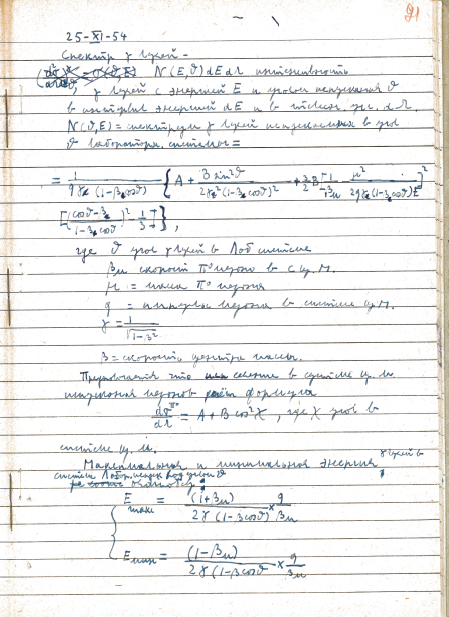 91
25-XI-54
Спектр γ лучей -
N(E,ϑ) dE dΩ интенсивность
γ лучей с энергией E и углом испускания ϑ
в интервале энергией dE и в телесн. уг. dΩ.
N(ϑ,E) = спектрум γ лучей испускания в угол
ϑ лаборатора. системе =
= 1 / (qγ(1-β cosϑ)) { A + B sin²ϑ / (2γ²(1-β cosϑ)²) + 3/2 B [ 1/βπ - μ² / (2qγβπ(1-β cosϑ)E) ]²
[ ( (cosϑ-β) / (1-β cosϑ) )² - 1/3 ] } ,
где ϑ угол γ лучей в Лаб системе
βπ скорость π° мезона в с цр. М.
μ = масса π° мезона
q = импульс мезона в системе цр. М.
γ = 1/√(1-β²)
β = скорость центра массы.
Предполагается что сечение в системе цр. м.
испускания мезонов формула
dσ^π°/dΩ = A + B cos²X , где X угол в
системе цр. м.
Максимальная и минимальная энергия γ лучей в
системе Лабор. под углом ϑ
E макс = (1+βπ) / (2γ(1-β cosϑ)) × q/βπ
E мин = (1-βπ) / (2γ(1-β cosϑ) × q/βπ